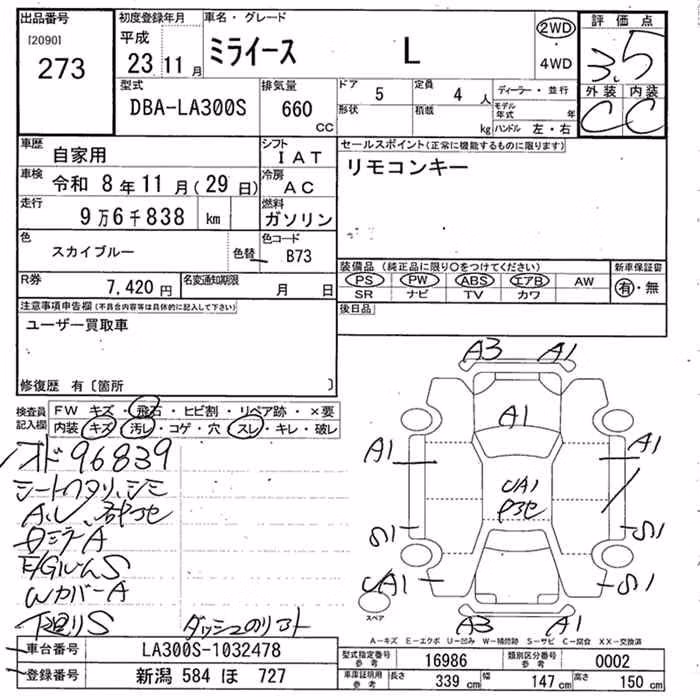 出品番号
[2090]
273
初度登録年月
平成
23 11 月
車名・グレード
ミライース L
2WD
・
4WD
評価点
3.5
外装 内装
C C
型式
DBA-LA300S
排気量
660
CC
ドア
5
形状
定員
4 人
積載
kg
ディーラー・並行
モデル年式 年
ハンドル 左・右
車歴
自家用
シフト
IAT
車検
令和 8年11月(29日)
冷房
AC
走行
9万6千838 km
燃料
ガソリン
色
スカイブルー
色替
色コード
B73
R券
7,420円
名変通知期限
月 日
セールスポイント(正常に機能するものに限ります)
リモコンキー
装備品(純正品に限り○をつけてください)
PS PW ABS エアB AW
SR ナビ TV カワ
新車保証書
有・無
後日品
注意事項申告欄(不具合内容等は具体的に記入して下さい)
ユーザー買取車
修復歴 有〔箇所 〕
検査員記入欄
FW キズ・飛石・ヒビ割・リペア跡・×要
内装 キズ・汚レ・コゲ・穴・スレ・キレ・破レ
96839
シートヘタリ、シミ
A.U
ミラーA
E/GルームS
WカバーA
下廻りS
A3 A1
A1
A1 A1
UA1
S1 S1
UA1 S1
A3 A1
スペア
A-キズ E-エクボ U-凹み W-補修跡 S-サビ C-腐食 XX-交換済
車台番号
LA300S-1032478
登録番号
新潟 584 ほ 727
型式指定番号 参考
16986
類別区分番号 参考
0002
車庫証明用 参考
長さ 339 cm
幅 147 cm
高さ 150 cm